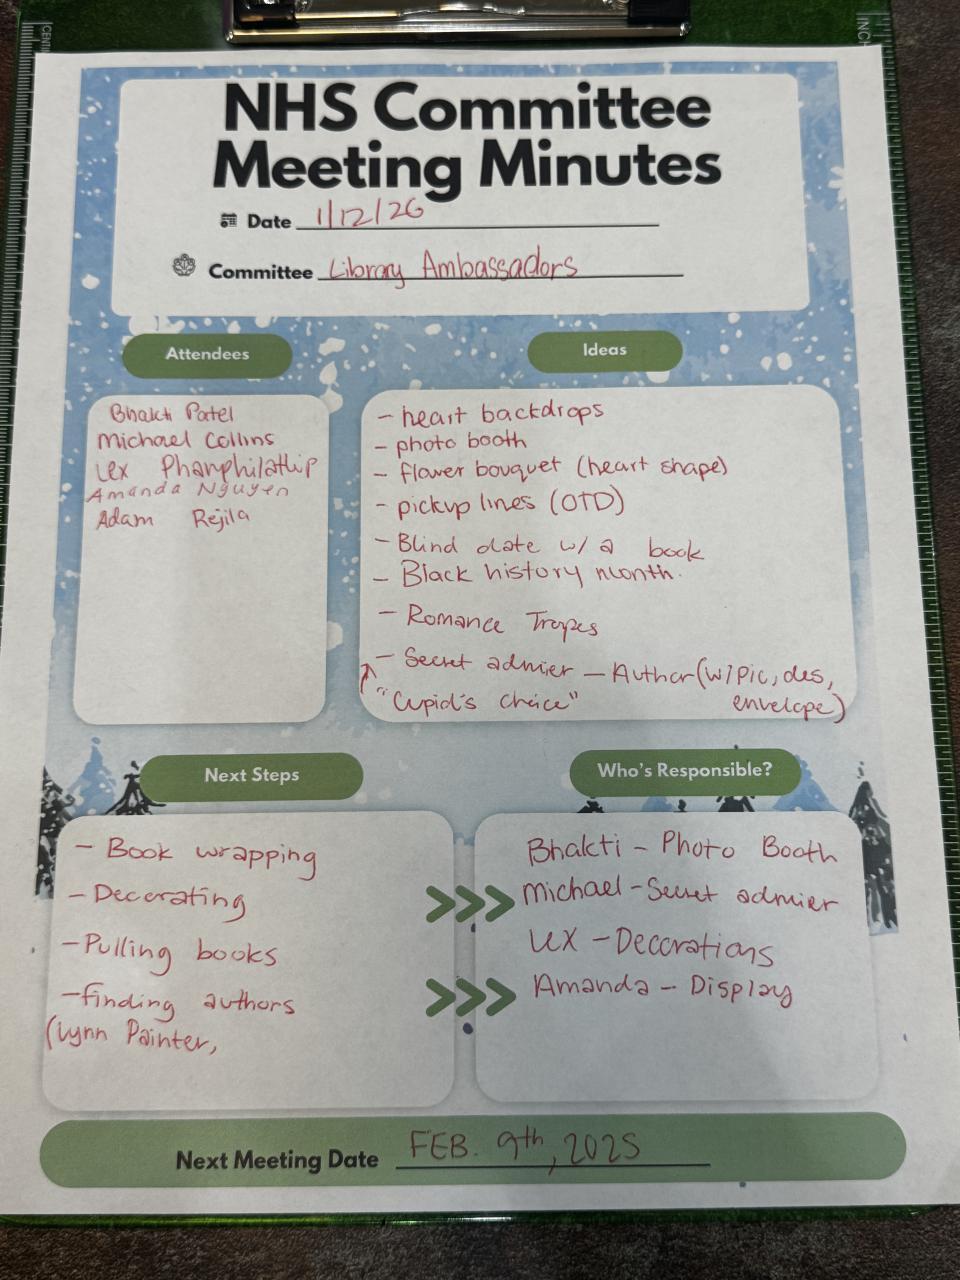 NHS Committee
Meeting Minutes
Date 1/12/26
Committee Library Ambassadors
Attendees
Bhakti Patel
Michael Collins
Lex Phanphilathip
Amanda Nguyen
Adam Rejila
Ideas
- heart backdrops
- photo booth
- flower bouquet (heart shape)
- pickup lines (OTD)
- Blind date w/ a book
- Black history month.
- Romance Tropes
- Secret admier - Author (w/pic, des,
"Cupid's choice" envelope)
Next Steps
- Book wrapping
- Decorating
- Pulling books
- finding authors
(Lynn Painter,
Who's Responsible?
Bhakti - Photo Booth
Michael - Secret admier
Lex - Decorations
Amanda - Display
Next Meeting Date FEB. 9th, 2025